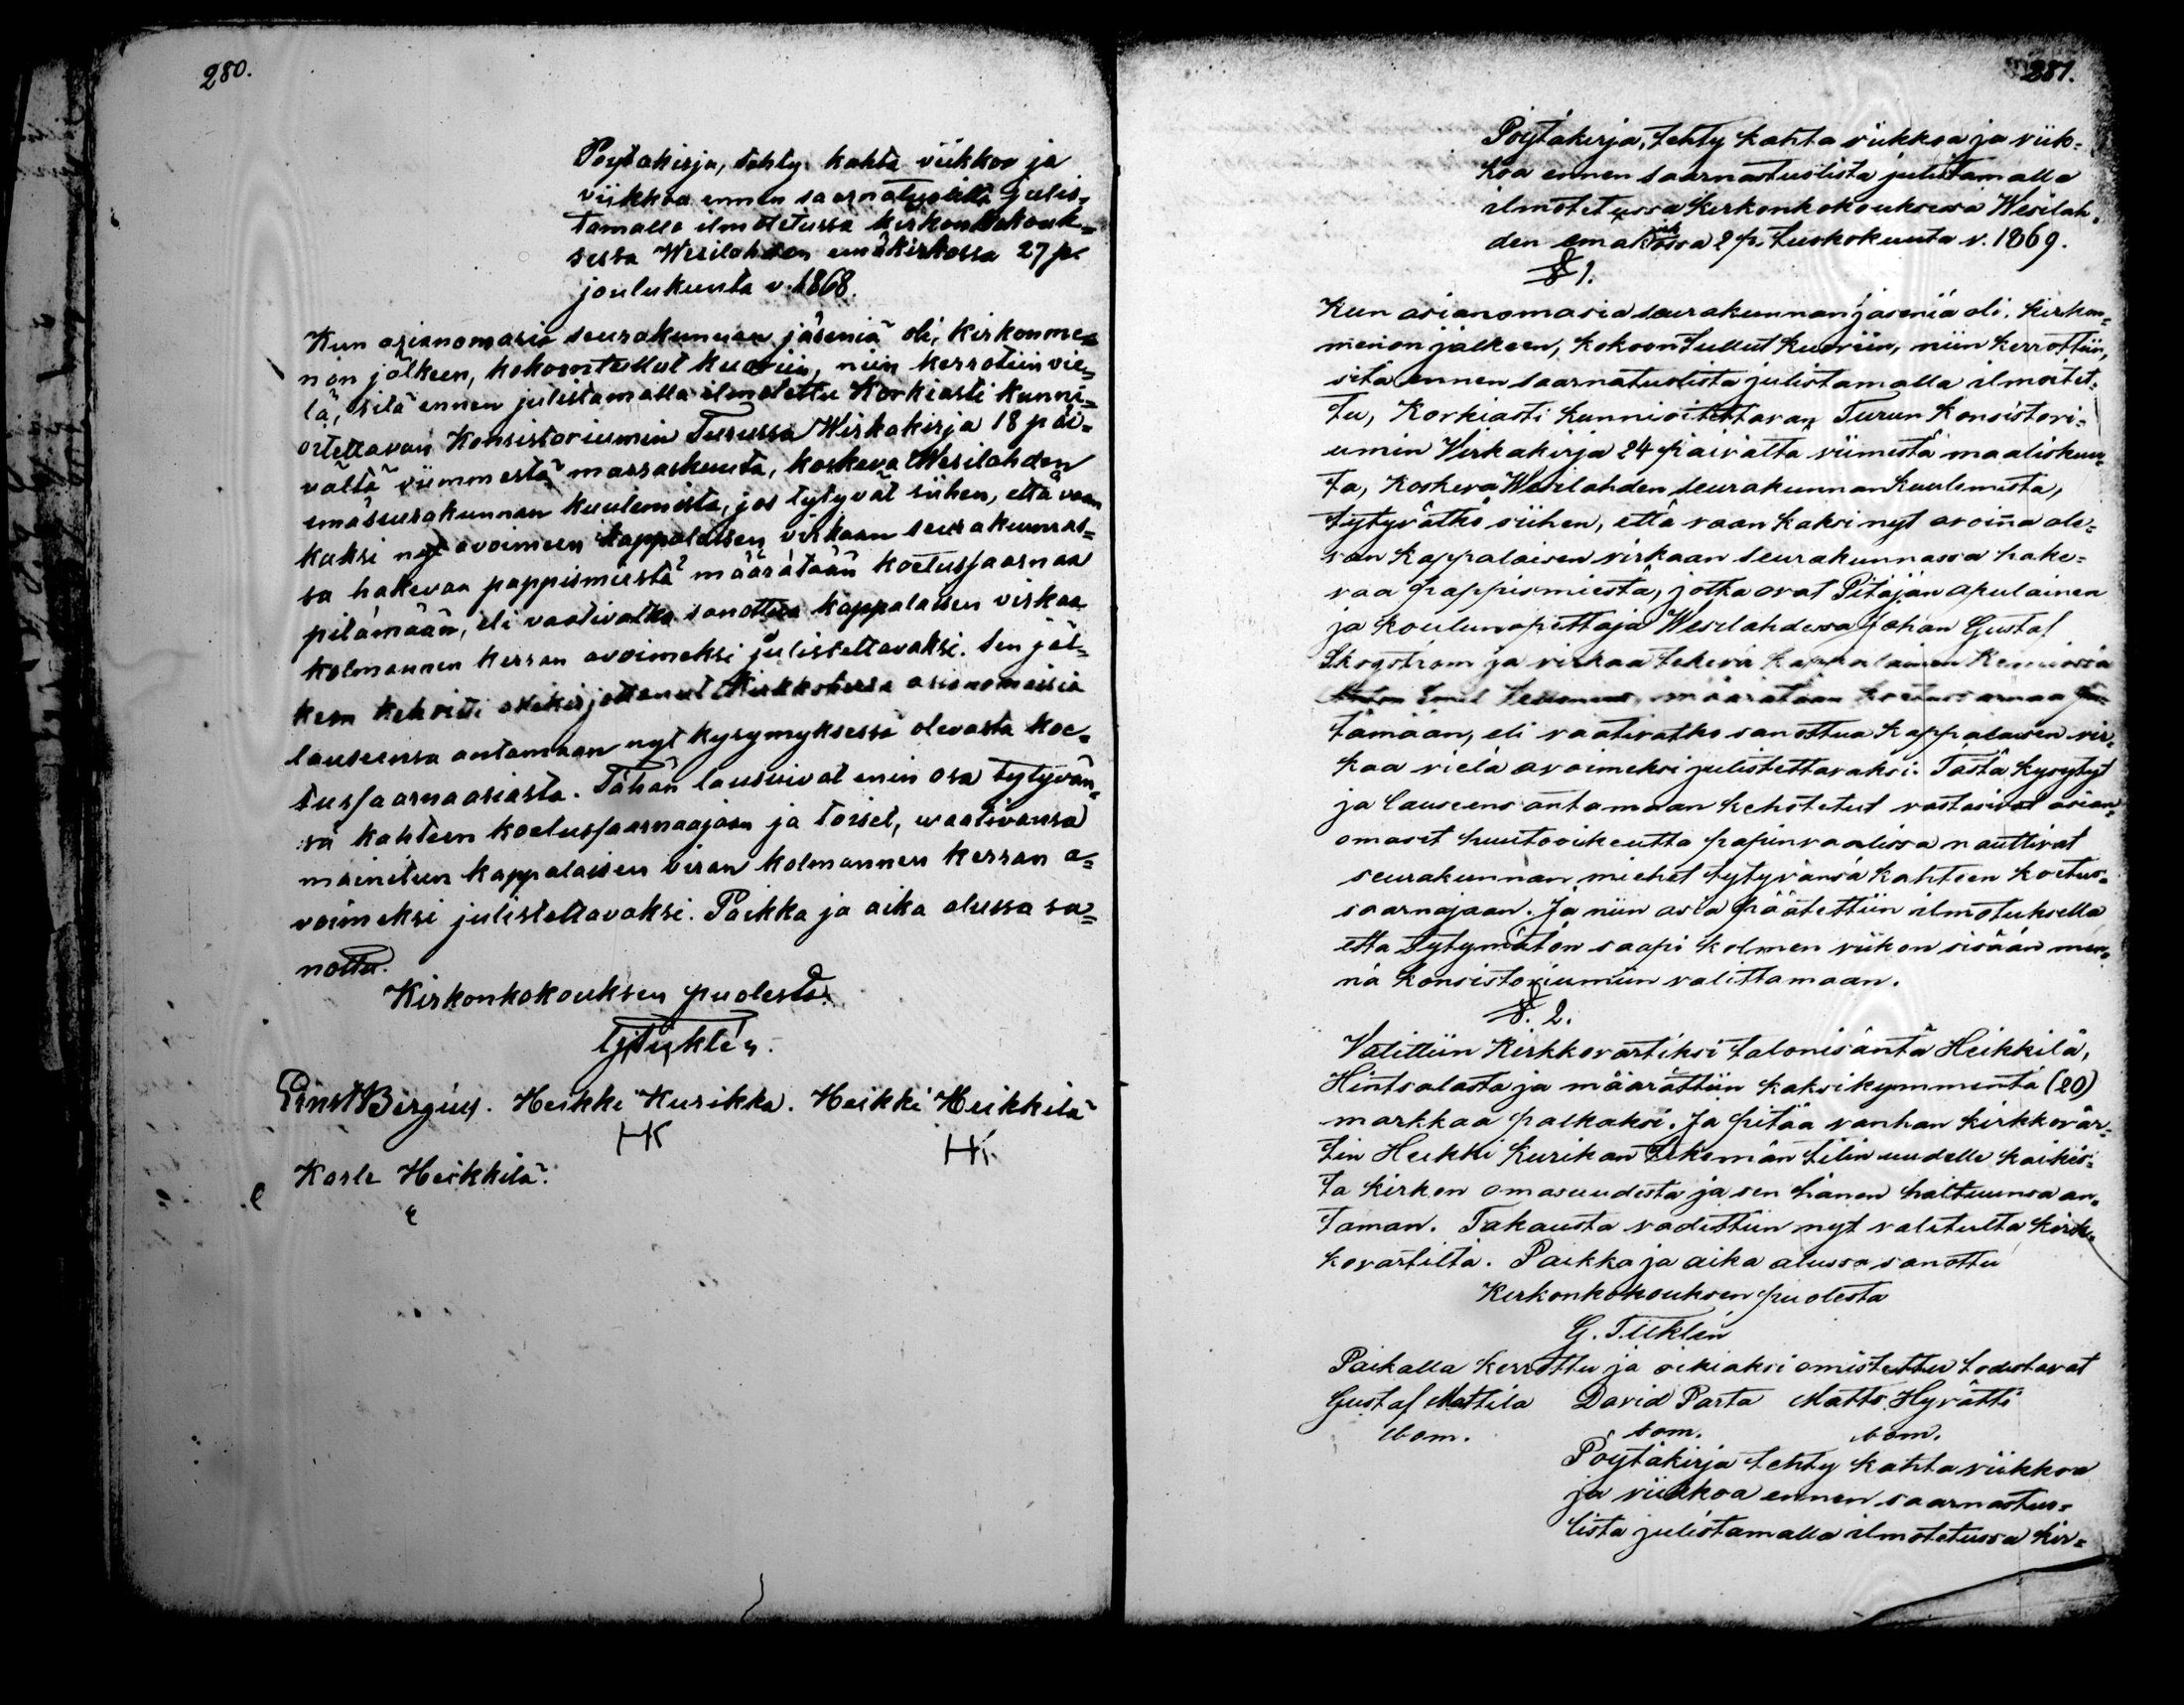 280.
Poytakirja, tehty kahta viikkoo ja
viikkoa ennen saarnatuolilta julis-
tamalla ilmotetussa kirkonkokouk-
sessa Wesilahden emäkirkossa 27 p.
joulukuuta v. 1868.
Kun asianomasia seurakunnan jäseniä oli, kirkonme-
non jälkeen, kokoontullut kuoriin, niin kerrotiin vie-
lä, sitä ennen julistamalla ilmotettu Korkiasti kunni-
oitettavan Konsistoriumin Turussa Wirkakirja 18 päi-
vältä viimmestä marraskuuta, koskeva Wesilahden
emäseurakunnan kuulemista, jos tytyvät siihen, että vaan
kaksi nyt avoimeen kappalaisen virkaan seurakunnas-
sa hakevaa pappismiestä määrätään koetussaarnaa
pitämään, eli vaativatko sanottua kappalaisen virkaa
kolmannen kerran avoimeksi julistettavaksi. Sen jäl-
keen kehoitti allekirjottanut Kirkkoherra asianomaisia
lauseensa antamaan nyt kysymyksessä olevasta koe-
tussaarnaasiasta. Tähän lausuivat enin osa tytyvän-
sä kahteen koetussaarnaajaan ja toiset, waativansa
mainitun kappalaisen viran kolmannen kerran a-
voimeksi julistettavaksi. Paikka ja aika alussa sa-
nottu.
Kirkonkokouksen puolesta.
Ernst Bergius. Heikki Kurikka. Heikki Heikkilä
HK HK
Karle Heikkilä.
281.
Pöytäkirja, tehty kahta viikkoa ja viik-
koa ennen saarnastuolista julistamalla
ilmotetussa Kirkonkokouksessa Wesilah-
den emäkirkossa 2 p. Toukokuuta v. 1869.
§ 1.
Kun asianomasia seurakunnan jäseniä oli, kirkon-
menon jälkeen, kokoontullut kuoriin, niin kerrottiin,
sitä ennen saarnatuolista julistamalla ilmoitet-
tu, Korkiasti kunnioitettavan Turun Konsistori-
umin Virkakirja 24 päivältä viimestä maaliskuu-
ta, koskeva Wesilahden seurakunnan kuulemista,
tytyvätkö siihen, että vaan kaksi nyt avoinna ole-
van kappalaisen virkaan seurakunnassa hake-
vaa pappismiestä, jotka ovat Pitäjän apulainen
ja koulunopettaja Wesilahdessa Johan Gustaf
Skogström ja virkaa tekevä kappalainen
Emil määrätään koetussarnaa pi-
tämään, eli vaativatko sanottua kappalaisen vir-
kaa vielä avoimeksi julistettavaksi. Tästä kysytyt
ja lauseens antamaan kehotetut vastasivat asian-
omaset huutooikeutta papinvaalissa nauttivat
seurakunnan miehet tytyvänsä kahteen koetus-
saarnajaan. Ja niin asia päätettiin ilmotuksella
että tytymätön saapi kolmen viikon sisään men-
nä konsistoriumiin valittamaan.
§. 2.
Valittiin Kirkkovärtiksi talonisäntä Heikkilä,
Hintsalasta ja määrättiin kaksikymmentä (20)
markkaa palkaksi. Ja pitää vanhan kirkkovär-
tin Heikki Kurikan tekemän tilin uudelle kaikis-
ta kirkon omasuudesta ja sen hänen haltuunsa an-
taman. Takausta vadittiin nyt valitulta kirk-
kovärtiltä. Paikka ja aika alussa sanottu
Kirkonkokouksen puolesta
G. Tuklén
Paikalla kerrottu ja oikiaksi omistettu todistavat
Gustaf Mattila David Parta Matts Hyrätti
bom. bom. bom.
Pöytäkirja tehty kahta viikkoa
ja viikkoa ennen saarnastuo-
lista julistamalla ilmotetussa kir-